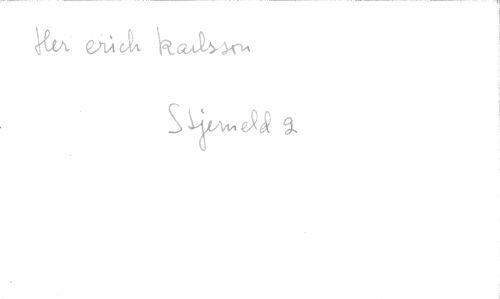 Her erich Karlsson
Stjerneld 2